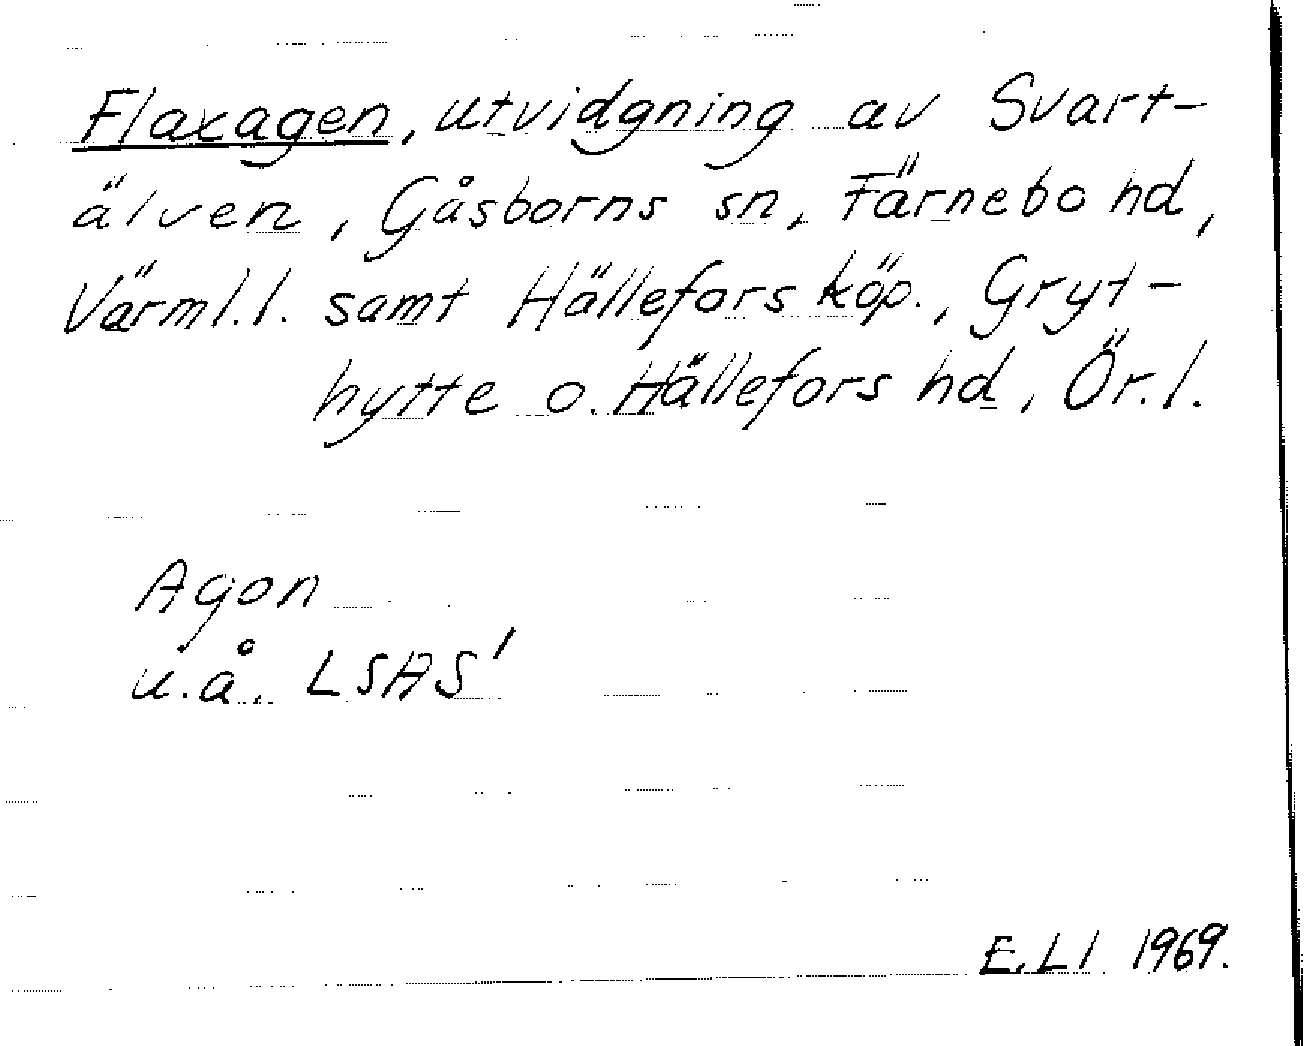 Flaxagen, utvidgning av Svart-
älven, Gåsborns sn, Färnebo hd,
Värml.l. samt Hällefors köp., Gryt-
hytte o. Hällefors hd, Ör.l.
Agon
u.å. LSAS'
E.Ll 1969.